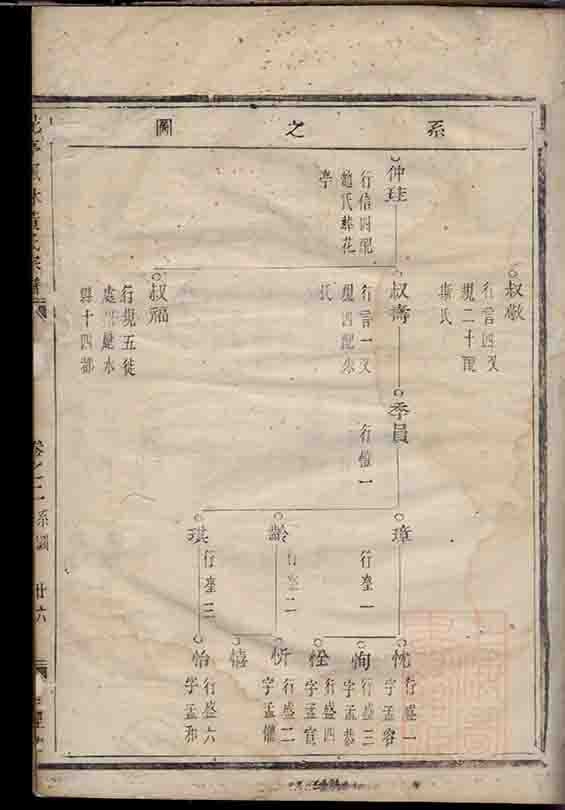 系之圖
仲珪
行信四配
趙氏葬花
亭
叔敬
行言四又
規二十配
斯氏
叔壽
行言一又
規四配朱
氏
叔福
行規五徙
處州麗水
縣十四都
季員
行愷一
璋
行臺一
齡
行臺二
琪
行臺三
忱
行盛一
字孟容
恂
行盛三
字孟恭
恮
行盛四
字孟宣
忻
行盛二
字孟懽
憘
怡
行盛六
字孟和
系圖
廿六